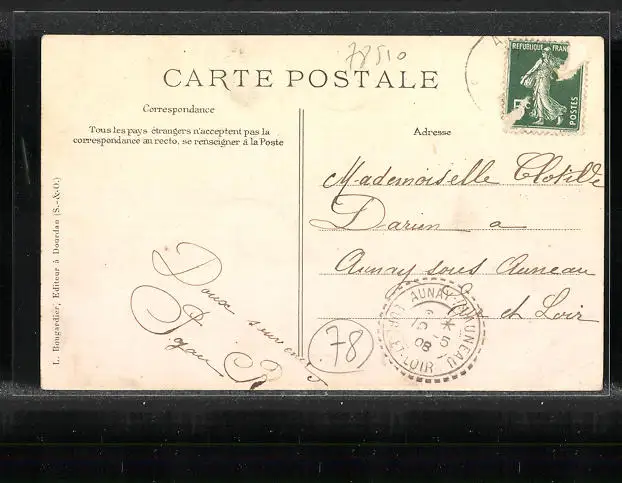 78510
CARTE POSTALE
Correspondance
Tous les pays étrangers n'acceptent pas la
correspondance au recto, se renseigner à la Poste
Adresse
REPUBLIQUE FRAN
POSTES
Mademoiselle Clotilde
Darien a
Aunay sous Auneau
et Loir
Doux
78
AUNAY-S-AUNEAU
5
08
EURE-ET-LOIR
L. Bougardier, Editeur à Dourdan (S.-&-O.)